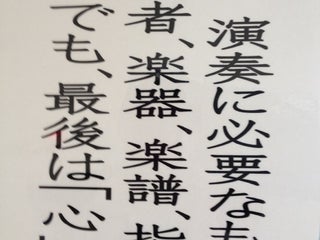 演奏に必要なも
者、楽器、楽譜、指
でも、最後は「心